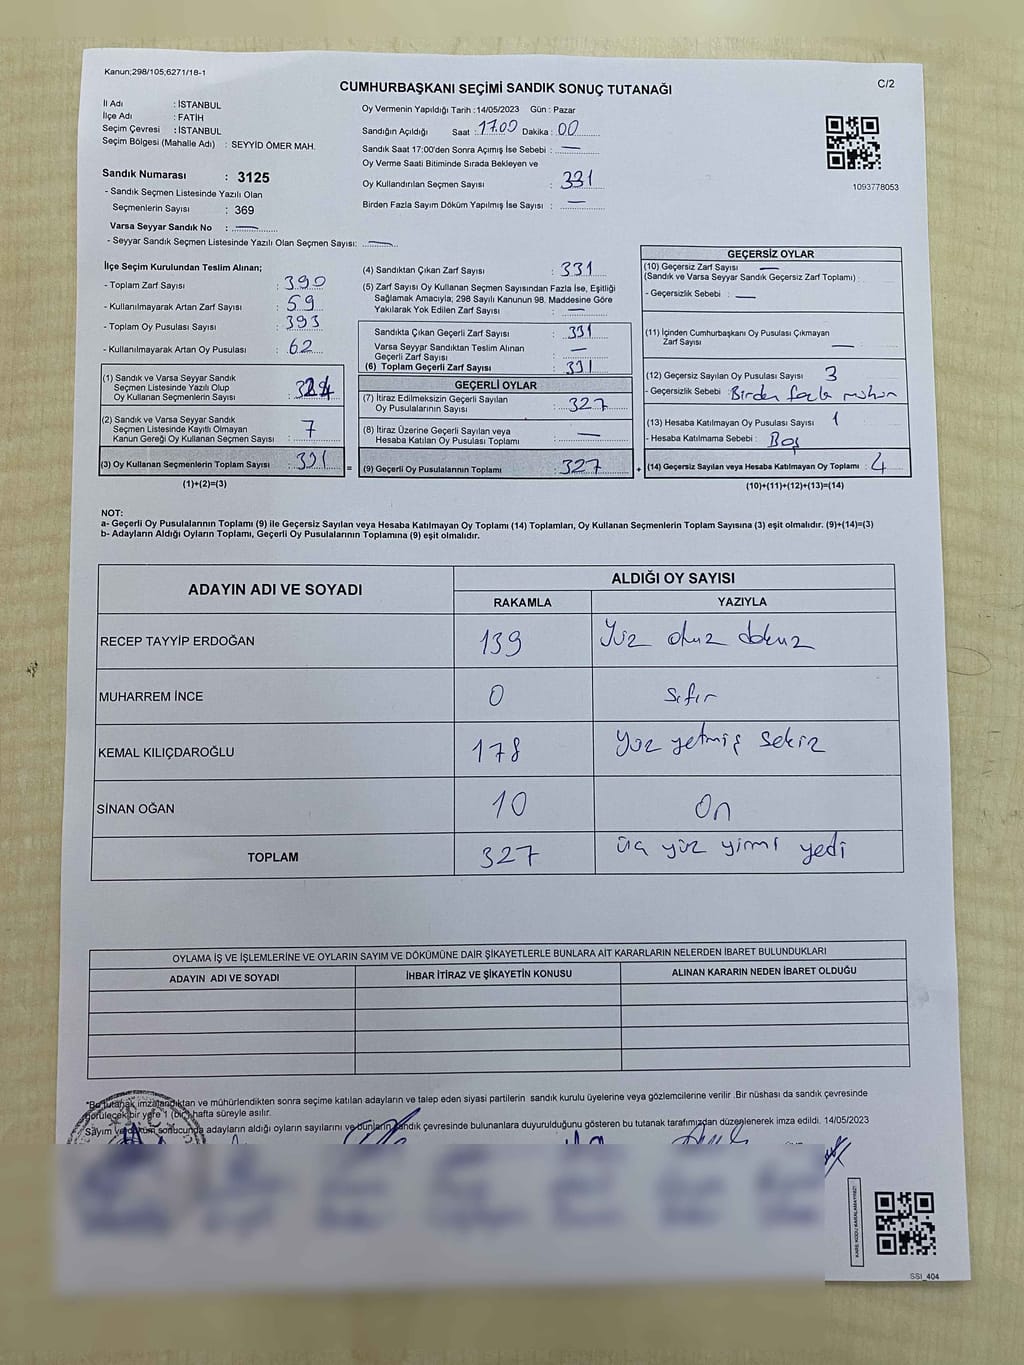 Kanun;298/105;6271/18-1
C/2
CUMHURBAŞKANI SEÇİMİ SANDIK SONUÇ TUTANAĞI
İl Adı : İSTANBUL
İlçe Adı : FATİH
Seçim Çevresi : İSTANBUL
Seçim Bölgesi (Mahalle Adı) : SEYYİD ÖMER MAH.
Sandık Numarası : 3125
- Sandık Seçmen Listesinde Yazılı Olan
Seçmenlerin Sayısı : 369
Varsa Seyyar Sandık No :
- Seyyar Sandık Seçmen Listesinde Yazılı Olan Seçmen Sayısı:
Oy Vermenin Yapıldığı Tarih : 14/05/2023 Gün : Pazar
Sandığın Açıldığı Saat : 17.00 Dakika : 00
Sandık Saat 17:00'den Sonra Açımış İse Sebebi :
Oy Verme Saati Bitiminde Sırada Bekleyen ve
Oy Kullandırılan Seçmen Sayısı : 331
Birden Fazla Sayım Döküm Yapılmış İse Sayısı :
1093778053
İlçe Seçim Kurulundan Teslim Alınan;
- Toplam Zarf Sayısı : 390
- Kullanılmayarak Artan Zarf Sayısı : 59
- Toplam Oy Pusulası Sayısı : 393
- Kullanılmayarak Artan Oy Pusulası : 62
(1) Sandık ve Varsa Seyyar Sandık
Seçmen Listesinde Yazılı Olup
Oy Kullanan Seçmenlerin Sayısı : 324
(2) Sandık ve Varsa Seyyar Sandık
Seçmen Listesinde Kayıtlı Olmayan
Kanun Gereği Oy Kullanan Seçmen Sayısı : 7
(3) Oy Kullanan Seçmenlerin Toplam Sayısı : 331
(1)+(2)=(3)
(4) Sandıktan Çıkan Zarf Sayısı : 331
(5) Zarf Sayısı Oy Kullanan Seçmen Sayısından Fazla İse, Eşitliği
Sağlamak Amacıyla; 298 Sayılı Kanunun 98. Maddesine Göre
Yakılarak Yok Edilen Zarf Sayısı :
Sandıkta Çıkan Geçerli Zarf Sayısı : 331
Varsa Seyyar Sandıktan Teslim Alınan
Geçerli Zarf Sayısı :
(6) Toplam Geçerli Zarf Sayısı : 331
GEÇERLİ OYLAR
(7) İtiraz Edilmeksizin Geçerli Sayılan
Oy Pusulalarının Sayısı : 327
(8) İtiraz Üzerine Geçerli Sayılan veya
Hesaba Katılan Oy Pusulası Toplamı :
= (9) Geçerli Oy Pusulalarının Toplamı : 327
GEÇERSİZ OYLAR
(10) Geçersiz Zarf Sayısı
(Sandık ve Varsa Seyyar Sandık Geçersiz Zarf Toplamı) :
- Geçersizlik Sebebi :
(11) İçinden Cumhurbaşkanı Oy Pusulası Çıkmayan
Zarf Sayısı
(12) Geçersiz Sayılan Oy Pusulası Sayısı 3
- Geçersizlik Sebebi : Birden fazla mühür
(13) Hesaba Katılmayan Oy Pusulası Sayısı 1
- Hesaba Katılmama Sebebi : Boş
+ (14) Geçersiz Sayılan veya Hesaba Katılmayan Oy Toplamı : 4
(10)+(11)+(12)+(13)=(14)
NOT:
a- Geçerli Oy Pusulalarının Toplamı (9) ile Geçersiz Sayılan veya Hesaba Katılmayan Oy Toplamı (14) Toplamları, Oy Kullanan Seçmenlerin Toplam Sayısına (3) eşit olmalıdır. (9)+(14)=(3)
b- Adayların Aldığı Oyların Toplamı, Geçerli Oy Pusulalarının Toplamına (9) eşit olmalıdır.
ADAYIN ADI VE SOYADI
ALDIĞI OY SAYISI
RAKAMLA YAZIYLA
RECEP TAYYİP ERDOĞAN 139 Yüz otuz dokuz
MUHARREM İNCE 0 sıfır
KEMAL KILIÇDAROĞLU 178 Yüz yetmiş sekiz
SİNAN OĞAN 10 On
TOPLAM 327 üç yüz yirmi yedi
OYLAMA İŞ VE İŞLEMLERİNE VE OYLARIN SAYIM VE DÖKÜMÜNE DAİR ŞİKAYETLERLE BUNLARA AİT KARARLARIN NELERDEN İBARET BULUNDUKLARI
ADAYIN ADI VE SOYADI İHBAR İTİRAZ VE ŞİKAYETİN KONUSU ALINAN KARARIN NEDEN İBARET OLDUĞU
*Bu tutanak imzalandıktan ve mühürlendikten sonra seçime katılan adayların ve talep eden siyasi partilerin sandık kurulu üyelerine veya gözlemcilerine verilir .Bir nüshası da sandık çevresinde
görülecek bir yere 1 (bir) hafta süreyle asılır.
Sayım ve döküm sonucunda adayların aldığı oyların sayılarını ve bunların sandık çevresinde bulunanlara duyurulduğunu gösteren bu tutanak tarafımızdan düzenlenerek imza edildi. 14/05/2023
KARE KODU KARALAMAYINIZ!
SSI_404